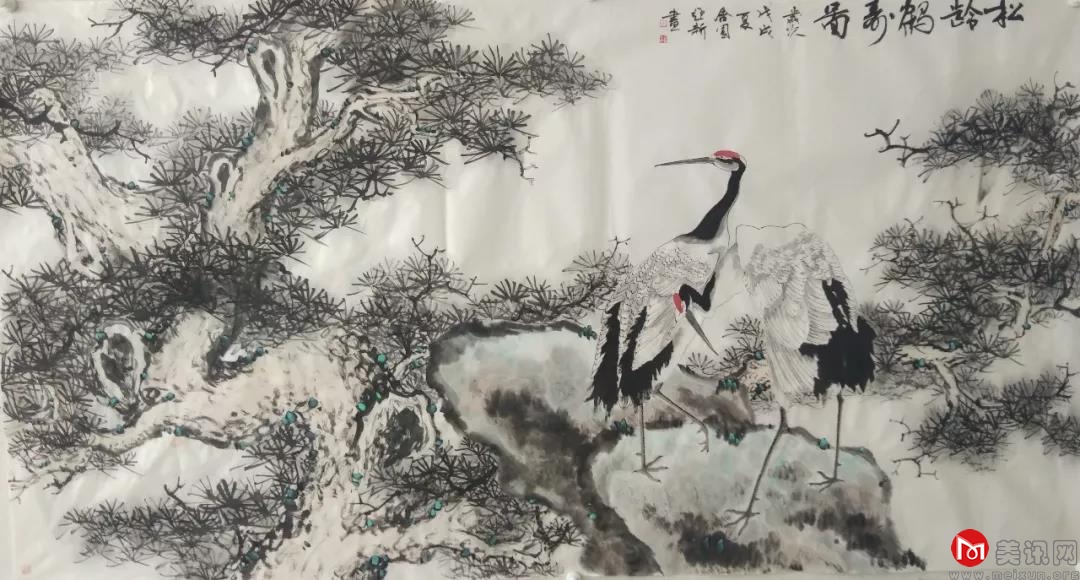 松龄鹤寿图
歲次
戊戌
夏
畫
美讯网
www.meixun.org